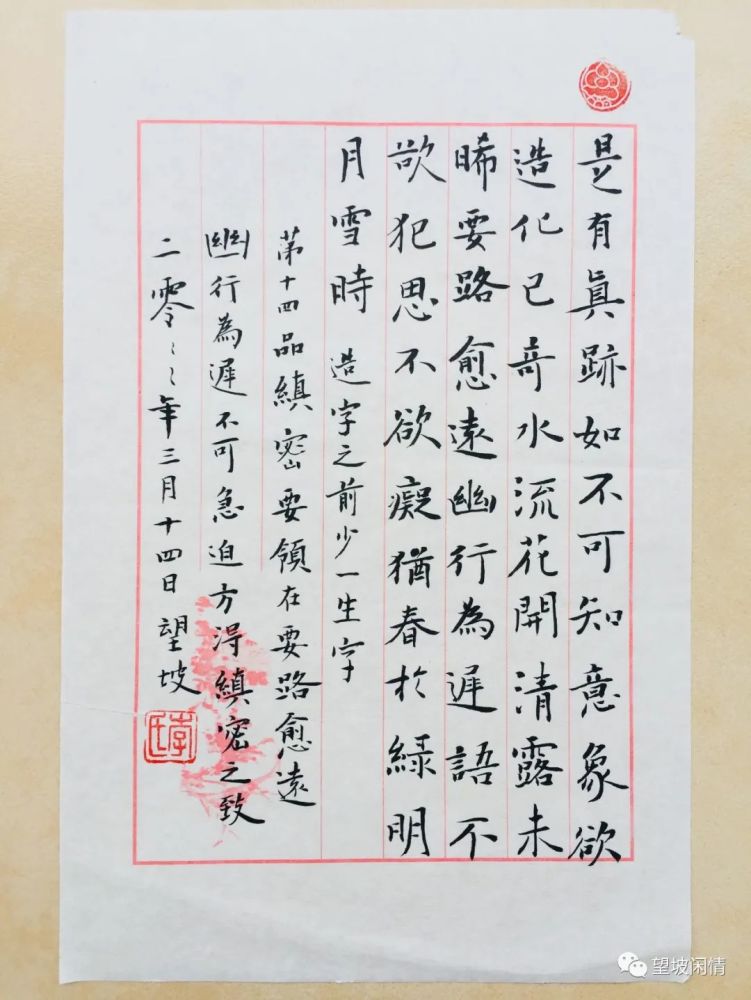 是有真跡如不可知意象欲
造化已奇水流花開清露未
晞要路愈遠幽行為遲語不
欲犯思不欲癡猶春於綠明
月雪時 造字之前少一生字
第十四品縝密要領在要路愈遠
幽行為遲不可急迫方得縝密之致
二零二二年三月十四日 望坡
李氏
望坡闲情